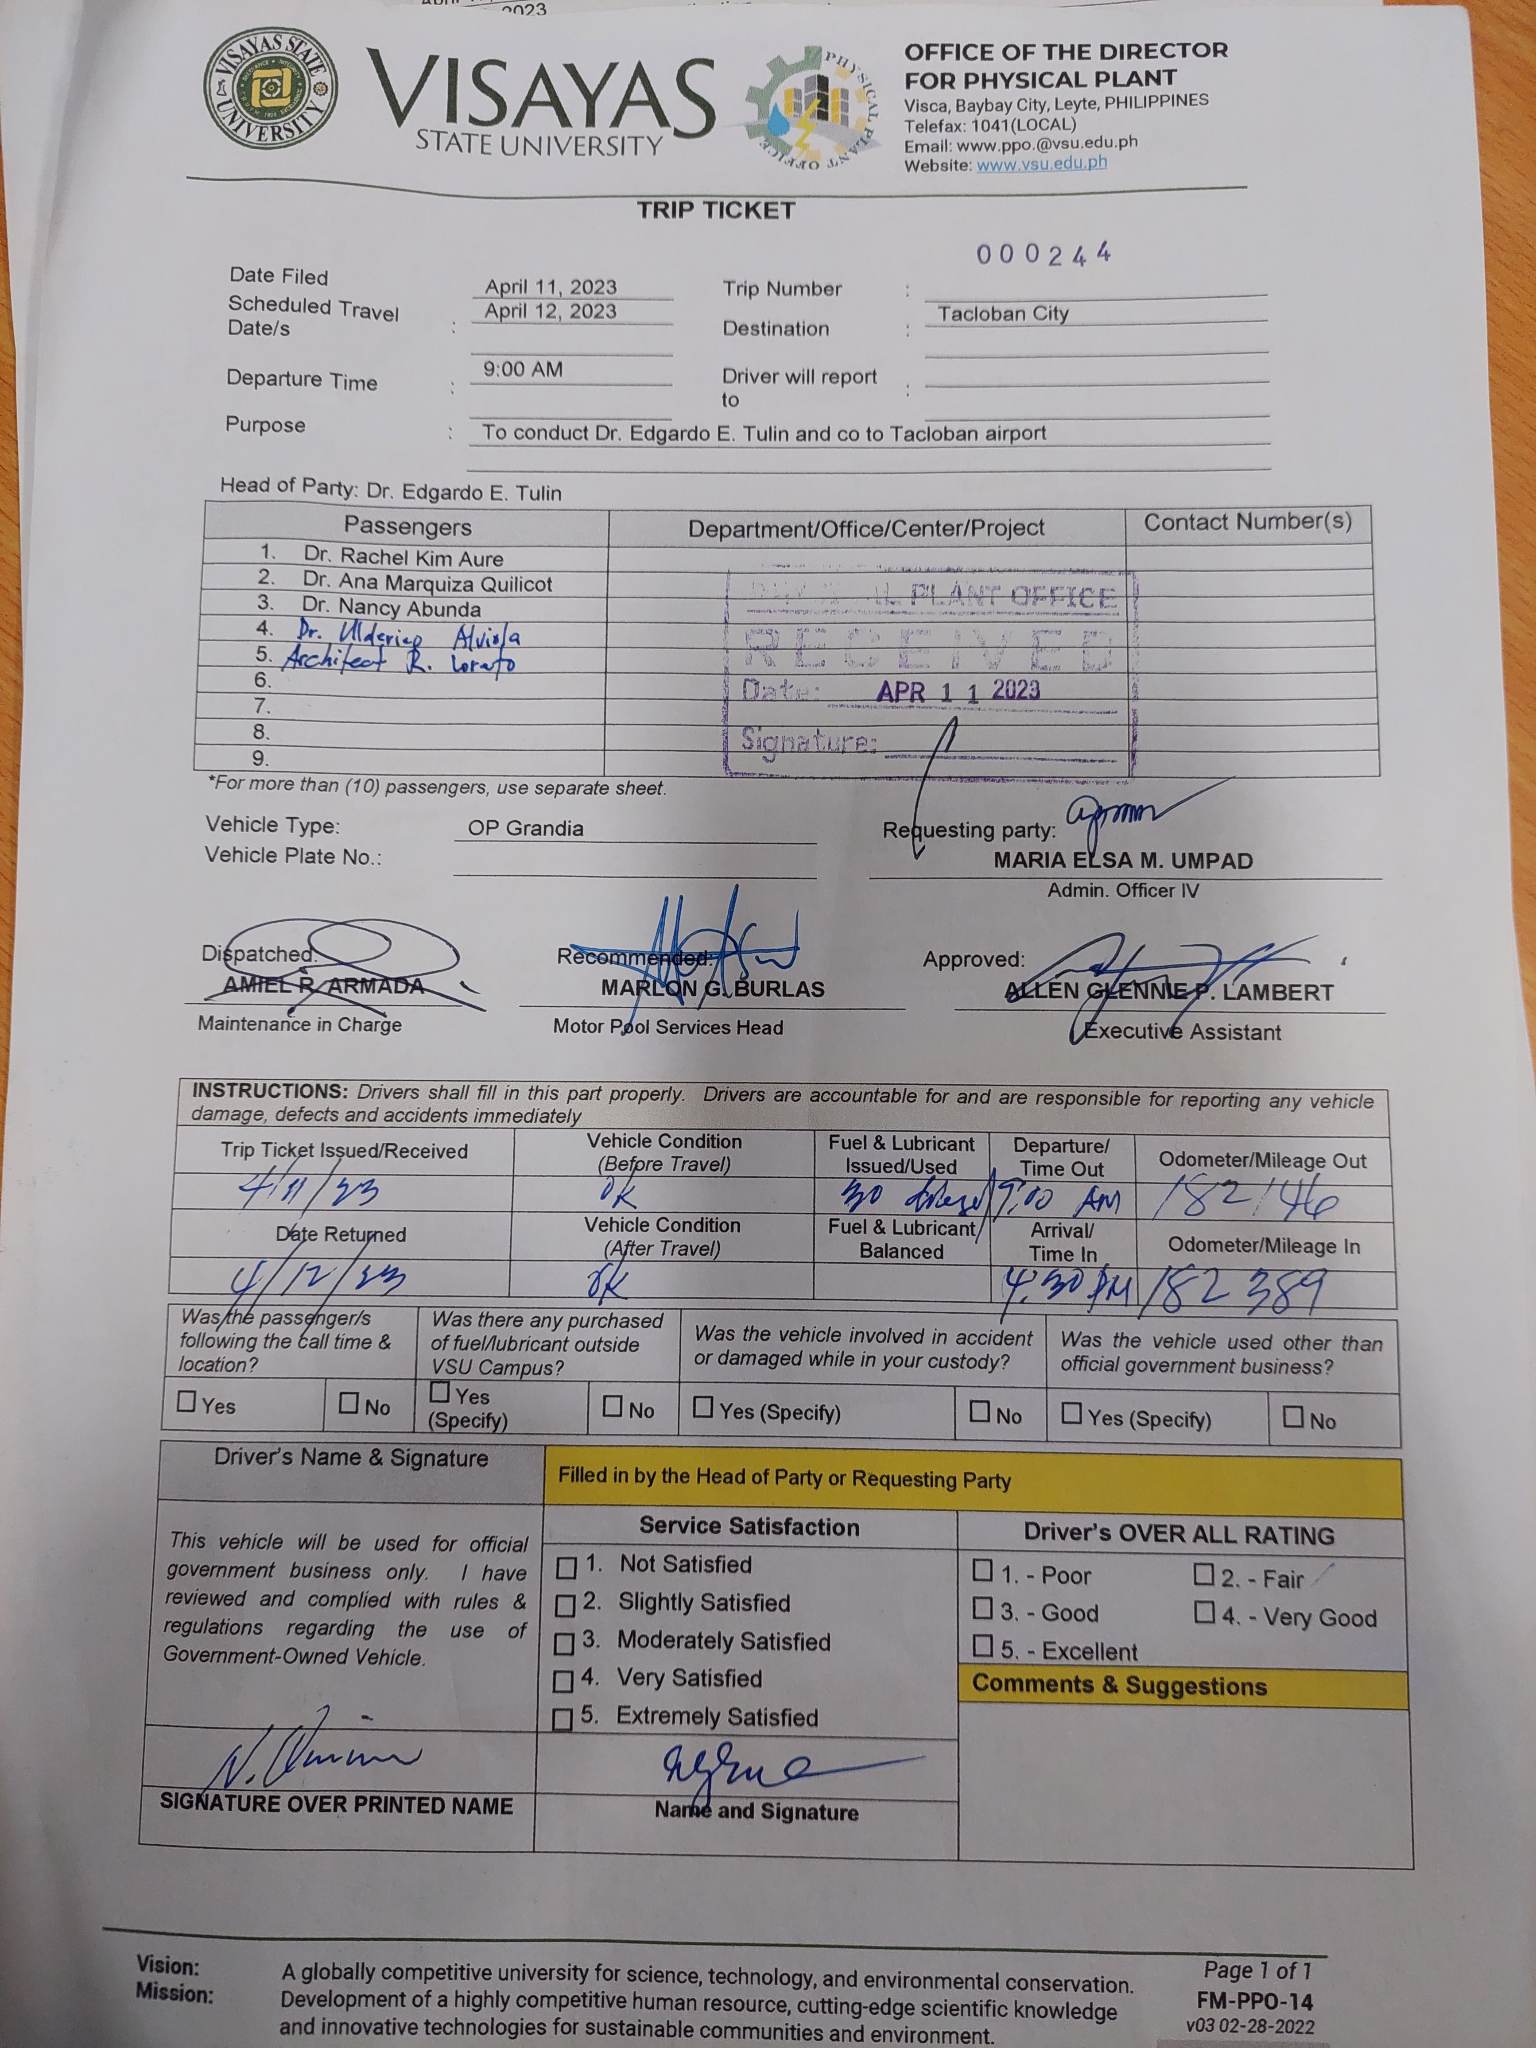 2023
VISAYAS STATE UNIVERSITY
VISAYAS
STATE UNIVERSITY
PHYSICAL PLANT OFFICE
OFFICE OF THE DIRECTOR
FOR PHYSICAL PLANT
Visca, Baybay City, Leyte, PHILIPPINES
Telefax: 1041(LOCAL)
Email: www.ppo.@vsu.edu.ph
Website: www.vsu.edu.ph
TRIP TICKET
000244
Date Filed April 11, 2023 Trip Number :
Scheduled Travel Date/s : April 12, 2023 Destination : Tacloban City
Departure Time : 9:00 AM Driver will report to :
Purpose : To conduct Dr. Edgardo E. Tulin and co to Tacloban airport
Head of Party: Dr. Edgardo E. Tulin
Passengers Department/Office/Center/Project Contact Number(s)
1. Dr. Rachel Kim Aure
2. Dr. Ana Marquiza Quilicot
3. Dr. Nancy Abunda
4. Dr. Ulderico Alviola
5. Architect R. Lorato
6.
7.
8.
9.
PLANT OFFICE
RECEIVED
Date: APR 11 2023
Signature:
*For more than (10) passengers, use separate sheet.
Vehicle Type: OP Grandia
Vehicle Plate No.:
Requesting party:
MARIA ELSA M. UMPAD
Admin. Officer IV
Dispatched: Recommended: Approved:
AMIEL R. ARMADA MARLON G. BURLAS ALLEN GLENNIE P. LAMBERT
Maintenance in Charge Motor Pool Services Head Executive Assistant
INSTRUCTIONS: Drivers shall fill in this part properly. Drivers are accountable for and are responsible for reporting any vehicle
damage, defects and accidents immediately
Trip Ticket Issued/Received Vehicle Condition (Before Travel) Fuel & Lubricant Issued/Used Departure/ Time Out Odometer/Mileage Out
4/11/23 OK 30 diesel 9:00 AM 182146
Date Returned Vehicle Condition (After Travel) Fuel & Lubricant Balanced Arrival/ Time In Odometer/Mileage In
4/12/23 OK 4:30 PM 182389
Was the passenger/s following the call time & location? Was there any purchased of fuel/lubricant outside VSU Campus? Was the vehicle involved in accident or damaged while in your custody? Was the vehicle used other than official government business?
Yes No Yes (Specify) No Yes (Specify) No Yes (Specify) No
Driver's Name & Signature
Filled in by the Head of Party or Requesting Party
This vehicle will be used for official
government business only. I have
reviewed and complied with rules &
regulations regarding the use of
Government-Owned Vehicle.
Service Satisfaction
1. Not Satisfied
2. Slightly Satisfied
3. Moderately Satisfied
4. Very Satisfied
5. Extremely Satisfied
Driver's OVER ALL RATING
1. - Poor 2. - Fair
3. - Good 4. - Very Good
5. - Excellent
Comments & Suggestions
SIGNATURE OVER PRINTED NAME
Name and Signature
Vision: A globally competitive university for science, technology, and environmental conservation.
Mission: Development of a highly competitive human resource, cutting-edge scientific knowledge
and innovative technologies for sustainable communities and environment.
Page 1 of 1
FM-PPO-14
v03 02-28-2022